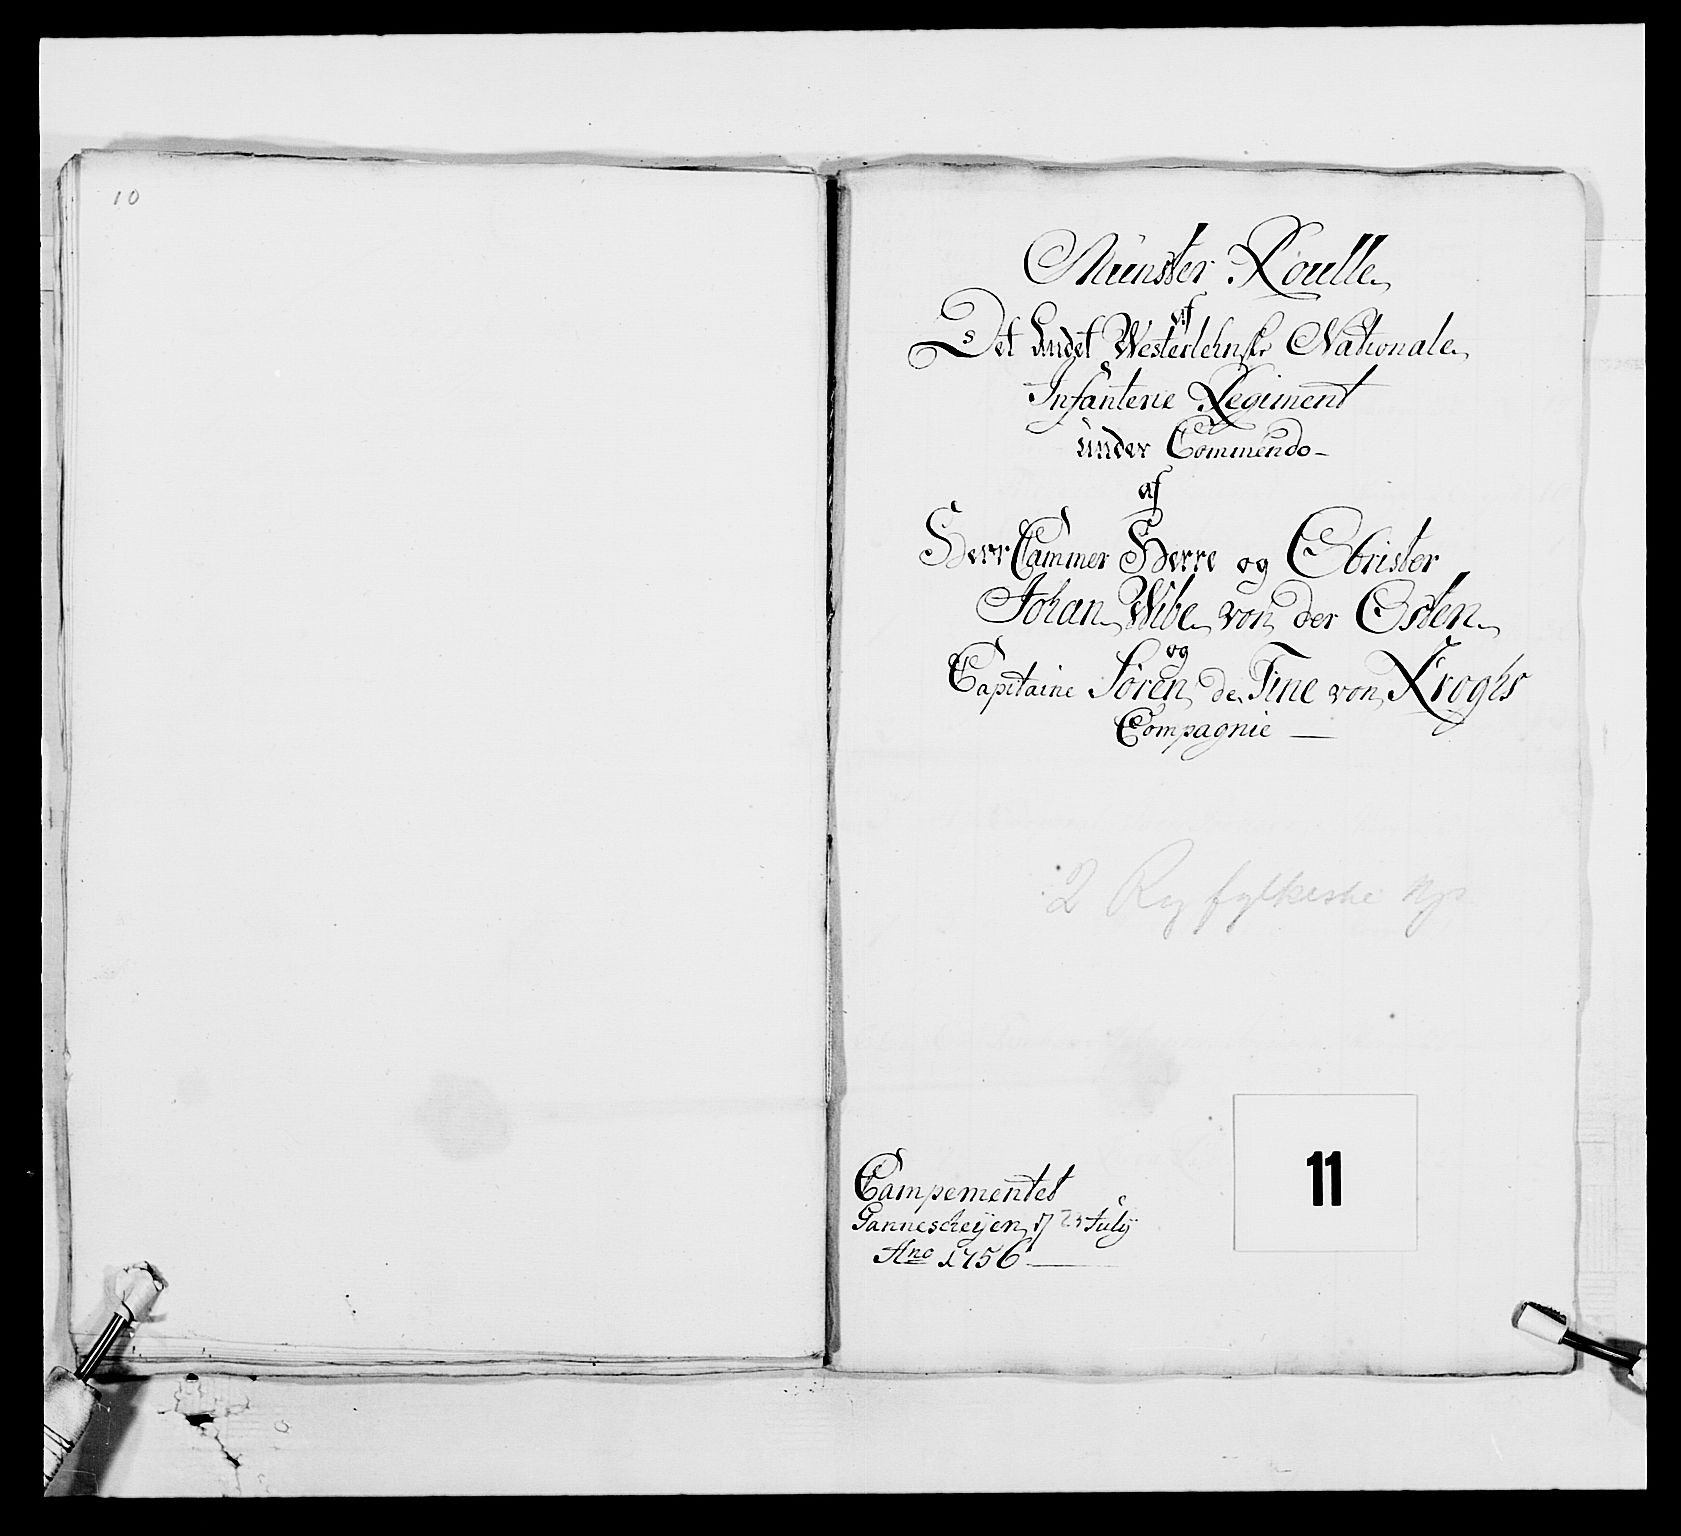 10
Münster Roulle
af
Det Andet Westerlehnske Nationale
Infanterie Regiment
ünder Commendo
af
Herr Cammer Herre og Obrister
Johan Wibe von der Osten
og
Capitaine Søren de Fine von Kroghs
Compagnie
2 Ryfylkeske
11
Campementet
July
Ano 1756